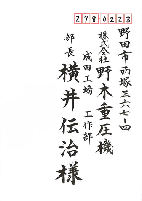 2780223
野田市西塚三六七-四
株式会社野木重圧機
成田工場 工作部
部長 横井伝治様